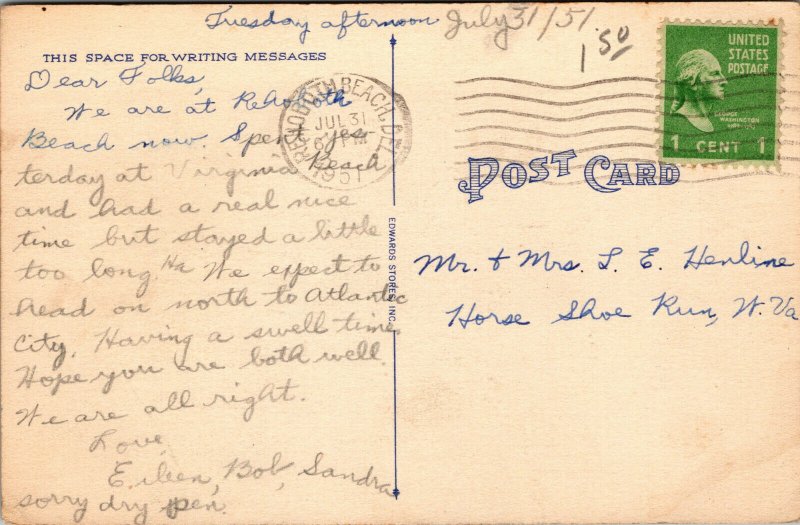 Tuesday afternoon July 31/51
1 50
THIS SPACE FOR WRITING MESSAGES
Dear Folks,
We are at Rehoboth
Beach now. Spent yes-
terday at Virginia Beach
and had a real nice
time but stayed a little
too long. Ha We expect to
head on north to Atlantic
City. Having a swell time.
Hope you are both well.
We are all right.
Love
Eileen, Bob, Sandra
sorry dry pen.
REHOBOTH BEACH, DEL.
JUL 31
6 PM
1951
EDWARDS STORES INC.
UNITED
STATES
POSTAGE
GEORGE
WASHINGTON
1789-1797
1 CENT 1
POST CARD
Mr. & Mrs. L. E. Henline
Horse Shoe Run, W. Va